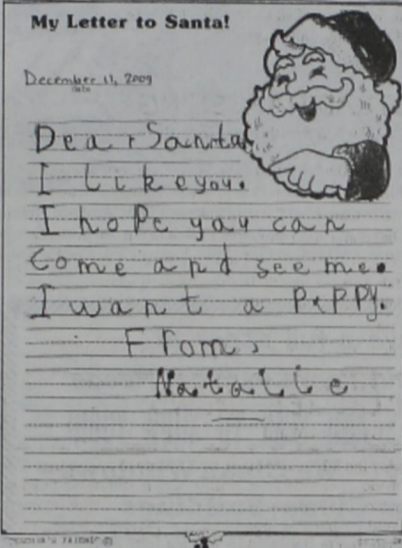 My Letter to Santa!
December 11, 2009
date
Dear Santa
I like you.
I hope you can
come and see me.
I want a Puppy.
From,
Natalie